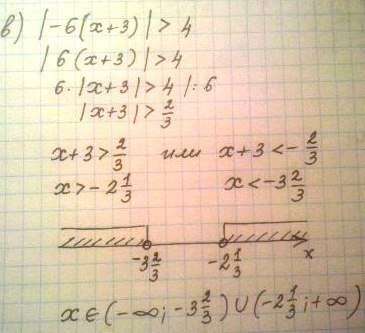 в) |-6(x+3)| > 4
|6(x+3)| > 4
6·|x+3| > 4 |:6
|x+3| > 2/3
x+3 > 2/3 или x+3 < -2/3
x > -2 1/3 x < -3 2/3
-3 2/3 -2 1/3 x
x ∈ (-∞; -3 2/3) ∪ (-2 1/3; +∞)